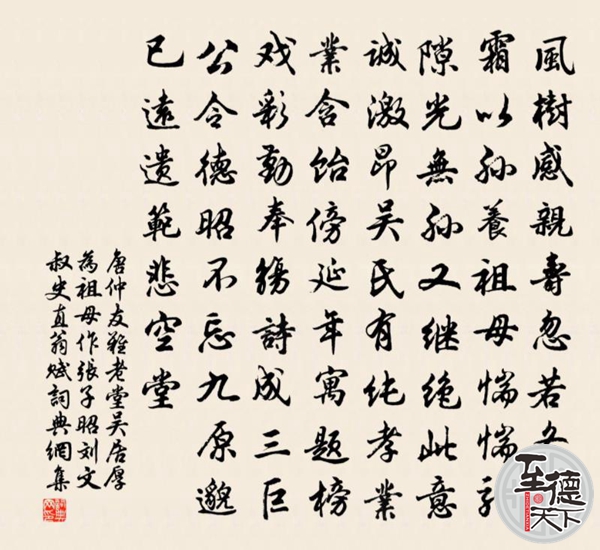 風樹感親壽忽若
霜以孙養祖母惴惴
隙光無孙又继绝此意
诚激昂吴氏有纯孝業
業含饴傍延年寓题榜
戏彩勤奉觞詩成三巨
公令德昭不忘九原邈
已遠遗範悲空堂
唐仲友雅老堂吴居厚
為祖母作张子昭刘文
叔史直翁赋詞典網集
至德天下